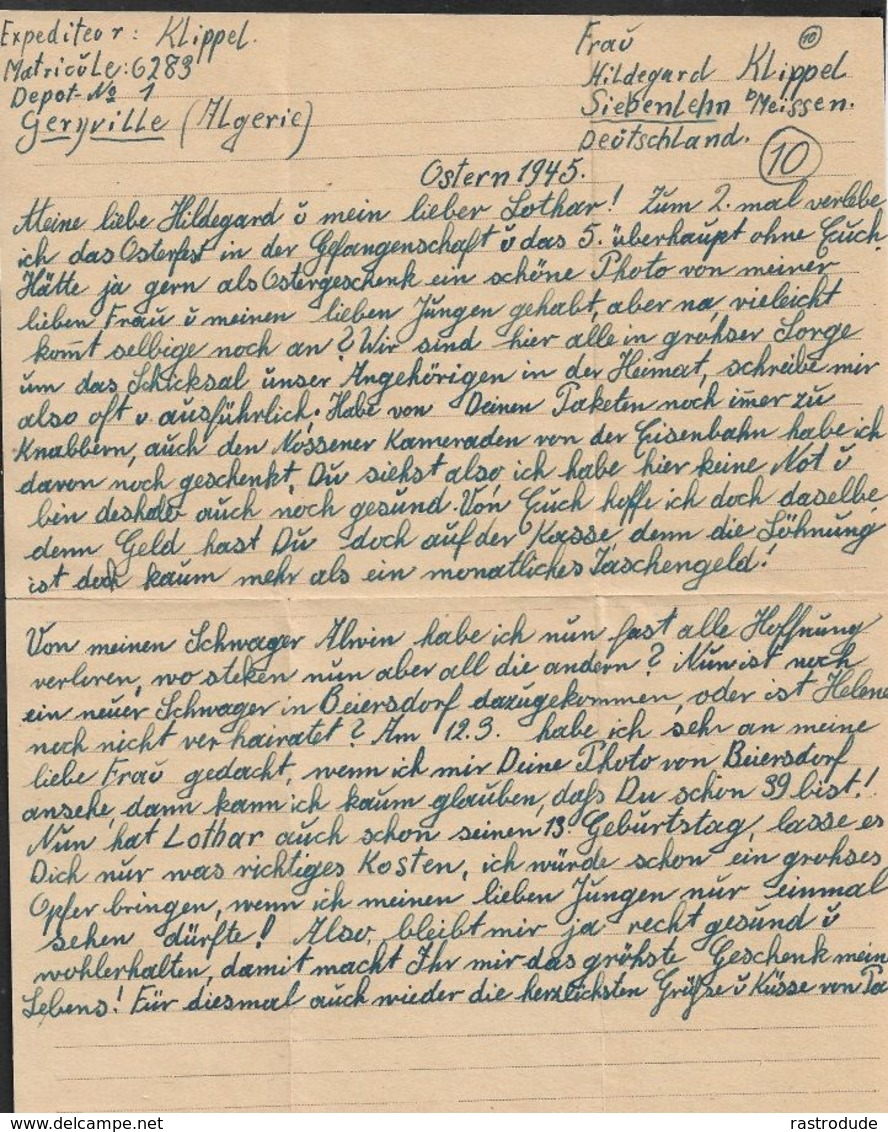 Expediteur: Klippel.
Matricule: 6283
Depot-No 1
Geryville (Algerie)
10
Frau
Hildegard Klippel
Siebenlehn b/Meissen.
Deutschland.
10
Ostern 1945.
Meine liebe Hildegard u mein lieber Lothar! Zum 2. mal verlebe
ich das Osterfest in der Gefangenschaft u das 5. überhaupt ohne Euch.
Hätte ja gern als Ostergeschenk ein schöne Photo von meiner
lieben Frau u meinen lieben Jungen gehabt, aber na, vieleicht
kom̅t selbige noch an? Wir sind hier alle in grohser Sorge
um das Schicksal unser Angehörigen in der Heimat, schreibe mir
also oft u. ausführlich. Habe von Deinen Paketen noch im̅er zu
Knabbern, auch den Nossener Kameraden von der Eisenbahn habe ich
davon noch geschenkt. Du siehst also, ich habe hier keine Not u
bin deshalb auch noch gesund. Von Euch hoffe ich doch daselbe,
denn Geld hast Du doch auf der Kasse, denn die Löhnung
ist doch kaum mehr als ein monatliches Taschengeld!
Von meinen Schwager Alwin habe ich nun fast alle Hoffnung
verloren, wo steken nun aber all die andern? Nun ist noch
ein neuer Schwager in Beiersdorf dazugekommen, oder ist Helene
noch nicht verhairatet? Am 12.3. habe ich sehr an meine
liebe Frau gedacht, wenn ich mir Deine Photo von Beiersdorf
ansehe, dann kann ich kaum glauben, dafs Du schon 39 bist!
Nun hat Lothar auch schon seinen 13. Geburtstag, lasse es
Dich nur was richtiges Kosten, ich würde schon ein grohses
Opfer bringen, wenn ich meinen lieben Jungen nur einmal
sehen dürfte! Also, bleibt mir ja recht gesund u
wohlerhalten, damit macht Ihr mir das gröhste Geschenk mein
Lebens! Für diesmal auch wieder die herzlichsten Grüfse u Küsse von Pa
rastrodude